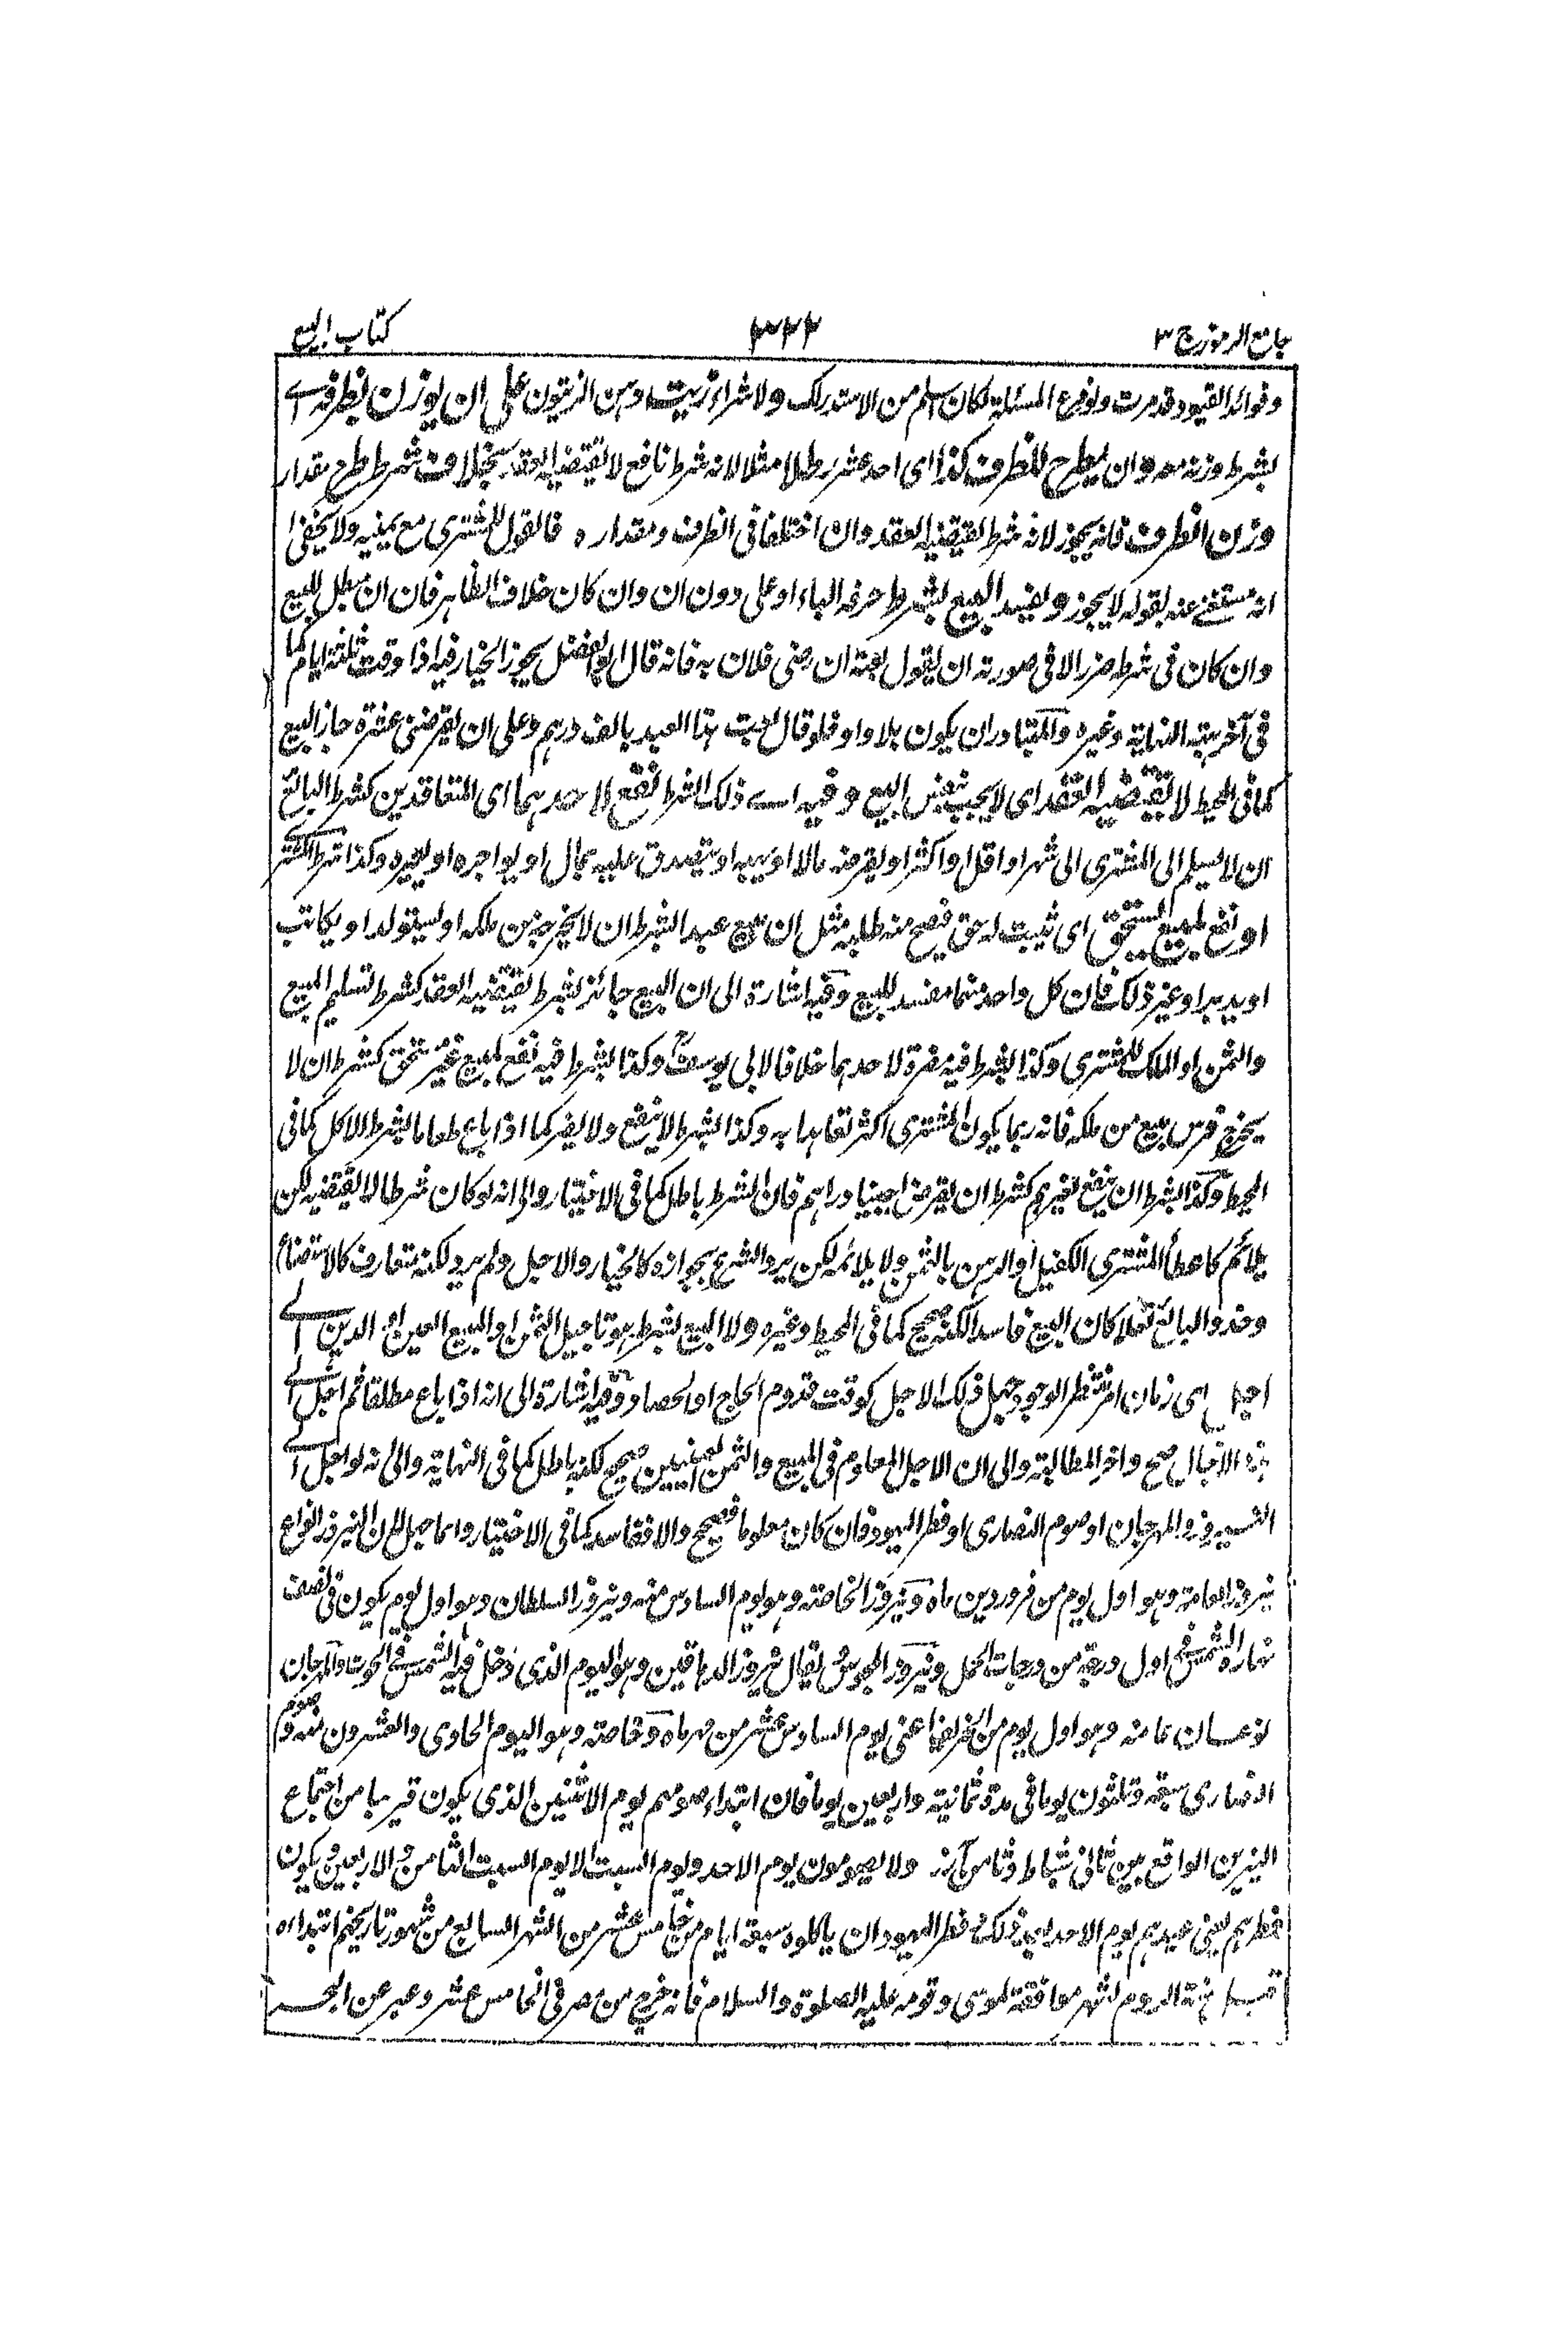 جامع الرموز ج ۳
۳۲۲
كتاب البيع
وفوائد القيود قد مرت ولو فرع المسئلة لكان اسلم من الاستدراك ولا شراء زيت دهن الزيتون على ان يوزن بظرفه اے
بشرط وزنه معه وان يطرح للظرف كذا اى احد عشر رطلا مثلا لانه شرط نافع لا يقتضيه العقد بخلاف شرط طرح مقدار
وزن الظرف فانه يجوز لانه شرط يقتضيه العقد وان اختلفا فى الظرف ومقداره فالقول للمشترى مع يمينه ولا يخفى
انه مستغنے عنه بقوله لا يجوز ويفسد البيع بشرط حرفه الباء او على دون ان وان كان خلاف الظاهر فان ان مبطل للبيع
وان كان فى شرطه ضرر الا فى صورته ان يقول بعته ان رضى فلان به فانه قال ابو الفضل يجوز الخيار فيه اذا وقت ثلثة ايام كما
فى آخر بيته النهاية وغيره والمتبادر ان يكون بلا واو فلو قال بعت هذا العبد بالف درهم وعلى ان يقرضنى عشرة جاز البيع
كما فى المحيط لا يقتضيه العقد اى لا يجب بنفس البيع وفيه اے ذلك الشرط نفع لاحدهما اى المتعاقدين كشرط البائع
ان لا يسلم الى المشترى الى شهر او اقل او اكثر او يقرضه مالا او يهبه او يتصدق عليه بمال او يواجره او يعيره وكذا شرط المشتر
او نفع لمبيع يستحق اى يثبت له حق فيصح منه طلبه مثل ان يبيع عبدا بشرط ان لا يخرجه من ملكه او يستولد او يكاتب
او يدبر او غير ذلك فان كل واحد منها مفسد للبيع وفيه اشارة الى ان البيع جائز بشرط يقتضيه العقد كشرط تسليم المبيع
والثمن او الملك للمشترى وكذا بشرط فيه مضرة لاحدهما خلافا لابى يوسف وكذا بشرط فيه نفع لمبيع غير مستحق كشرط ان لا
يخرج فرس مبيع من ملكه فانه ربما يكون المشترى اكثر تعاهدا به وكذا بشرط لا ينفع ولا يضر كما اذا باع طعاما بشرط الاكل كما فى
المحيط وكذا بشرط ان ينفع لغيرهم كشرط ان يقرض اجنبيا دراهم فان الشرط باطل كما فى الاختيار والى انه لو كان شرطا لا يقتضيه لكن
يلائم كاعطاء المشترى الكفيل او الرهن بالثمن ولا يلائمه لكن يرد الشرع بجوازه كالخيار والاجل ولم يرد لكنه متعارف كالاستصناع
وحذو البائع نعلا كان البيع فاسدا لكنه صحيح كما فى المحيط وغيره ولا البيع بشرط هو تاجيل الثمن او المبيع العين او الدين الے
اجل اى زمان امر منتظر الوجود جهل ذلك الاجل كوقت قدوم الحاج او الحصاد وفيه اشارة الى انه اذا باع مطلقا ثم اجل الے
هذه الآجال صح واخر المطالبة والى ان الاجل المعلوم فى المبيع والثمن العينين صحيح لكنه باطل كما فى النهاية والى انه لو اجل الے
النيروز والمهرجان او صوم النصارى او فطر اليهود فان كان معلوما فصحيح والا ففاسد كما فى الاختيار وانما جهل لان النيروز انواع
نيروز العامة وهو اول يوم من فروردين ماه ونيروز الخاصة وهو يوم السادس منه ونيروز السلطان وهو اول يوم يكون فى نصف
نهاره الشمس فى اول درجة من درجات الحمل ونيروز المجوس يقال نيروز الدهاقين وهو اليوم الذى دخل فيه الشمس فى الحوت والمهرجان
نوعان عامة وهو اول يوم من الخريف اعنى يوم السادس عشر من مهرماه وخاصته وهو اليوم الحادى والعشرون منه وصوم
النصارى سبعة وثلثون يوما فى مدة ثمانية واربعين يوما فان ابتداء صومهم يوم الاثنين الذى يكون قريبا من اجتماع
النيرين الواقع بين ثانى شباط وثامن آزر ولا يصومون يوم الاحد ويوم السبت الا يوم السبت الثامن والاربعين ويكون
فطرهم يعنى عيدهم يوم الاحد بعد ذلك وفطر اليهود ان ياكلوه سبعة ايام من خامس عشر من الشهر السابع من شهور تاريخهم ابتداءه
الروم لشهر موافقة لموسى وقومه عليه الصلوة والسلام فانه خرج من مصر فى الخامس عشر وعبر عن البحر